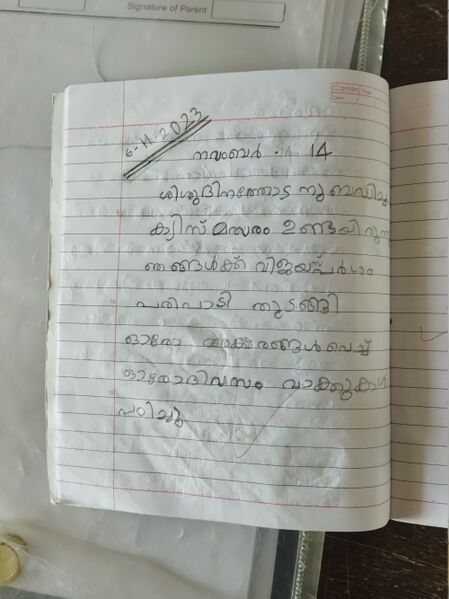 Signature of Parent
Camlin
Date
6-11-2023
നവംബർ 14
ശിശുദിനത്തോട നുബന്ധിച്ചു
ക്വിസ് മത്സരം ഉണ്ടയിരുന്നു
ഞങ്ങൾക്ക് വിജയസ്പർശം
പരിപാടി തുടങ്ങി
ഓരോ അക്ഷരങ്ങൾ വെച്ച്
ഓരോദിവസം വാക്കുകൾ
പഠിച്ചു